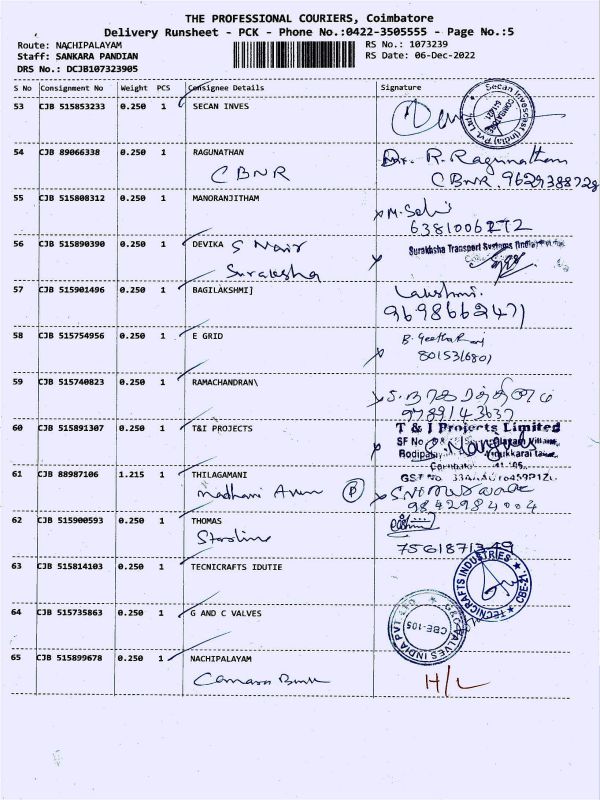 THE PROFESSIONAL COURIERS, Coimbatore
Delivery Runsheet - PCK - Phone No.:0422-3505555 - Page No.:5
Route: NACHIPALAYAM RS No.: 1073239
Staff: SANKARA PANDIAN RS Date: 06-Dec-2022
DRS No.: DCJB107323905
S No Consignment No Weight PCS Consignee Details Signature
53 CJB 515853233 0.250 1 SECAN INVES
Secan Invescast (India) Pvt Ltd
54 CJB 89066338 0.250 1 RAGUNATHAN
CBNR
Dr. R. Ragunathan
CBNR. 9629388728
55 CJB 515808312 0.250 1 MANORANJITHAM
M. Selvi
6381006272
56 CJB 515890390 0.250 1 DEVIKA S Nair
Suraksha
Suraksha Transport Systems (India)
57 CJB 515901496 0.250 1 BAGILAKSHMI]
Lakshmi.
9698662471
58 CJB 515754956 0.250 1 E GRID
B. Geetha
8015316801
59 CJB 515740823 0.250 1 RAMACHANDRAN\
9789143637
60 CJB 515891307 0.250 1 T&I PROJECTS
T & J Projects Limited
SF No
GST No.
61 CJB 88987106 1.215 1 THILAGAMANI
madhani Arun P
9842984004
62 CJB 515900593 0.250 1 THOMAS
Starline
7561871349
63 CJB 515814103 0.250 1 TECNICRAFTS IDUTIE
TECNICRAFTS INDUSTRIES CBE-21
64 CJB 515735863 0.250 1 G AND C VALVES
VALVES INDIA PVT LTD
CBE-105
65 CJB 515899678 0.250 1 NACHIPALAYAM
Canara Bank
H/L